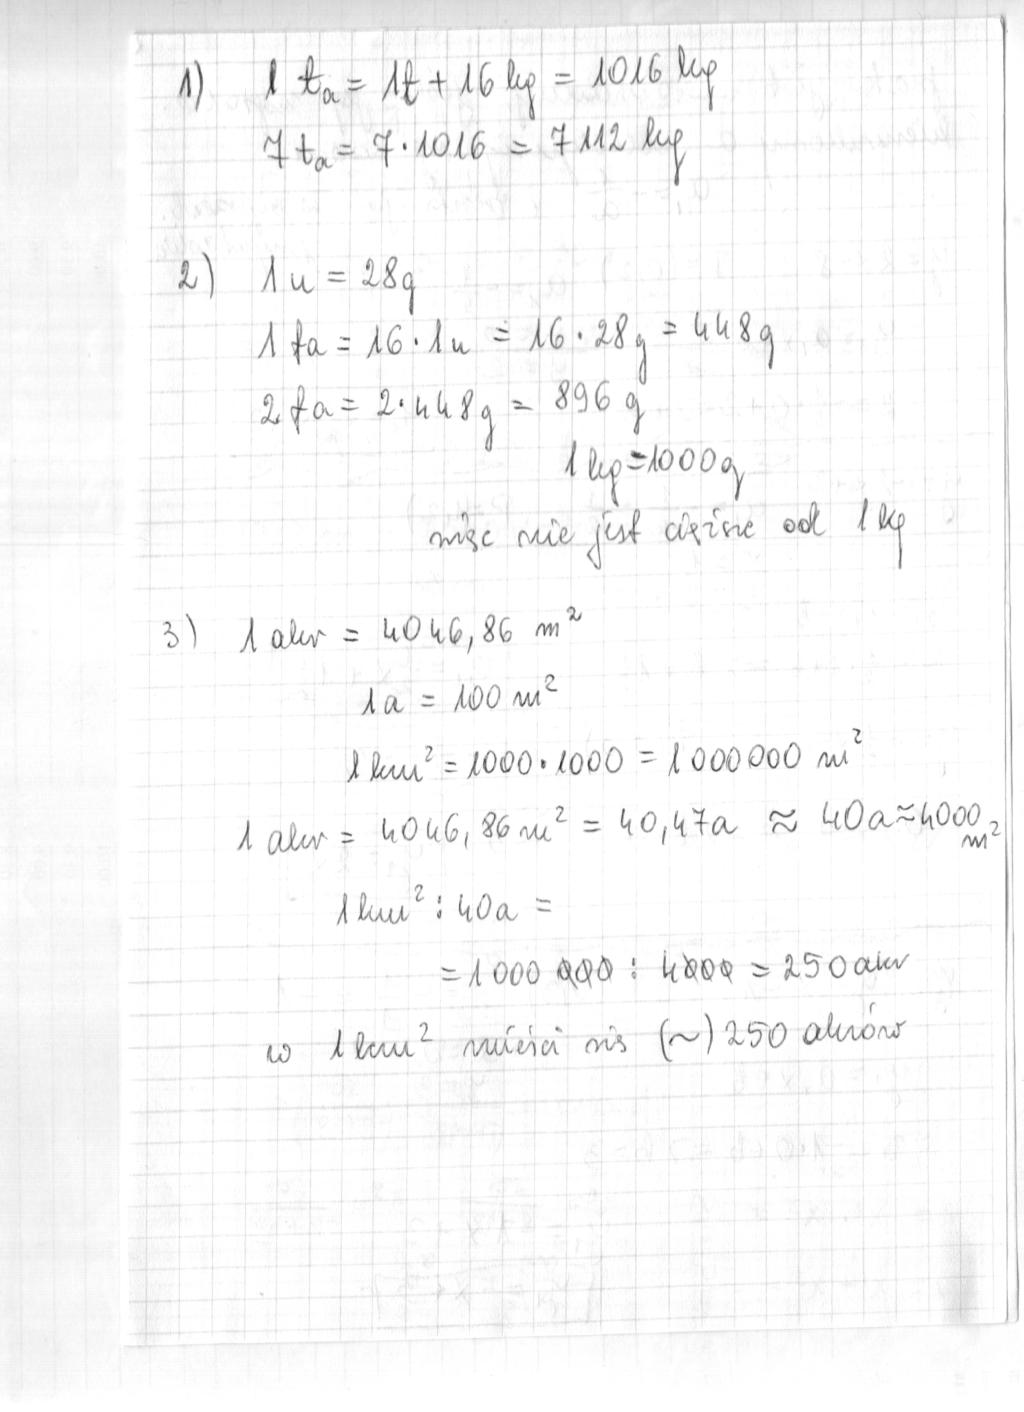 1) 1 tₐ = 1t + 16 kg = 1016 kg
7 tₐ = 7 · 1016 = 7112 kg
2) 1 u = 28g
1 fa = 16 · 1u = 16 · 28g = 448g
2 fa = 2 · 448g = 896 g
1 kg = 1000g
więc nie jest cięższe od 1 kg
3) 1 akr = 4046,86 m²
1a = 100 m²
1 km² = 1000 · 1000 = 1 000 000 m²
1 akr = 4046,86 m² = 40,47a ≈ 40a ≈ 4000 m²
1 km² : 40a =
= 1000 000 : 4000 = 250 akr
w 1 km² mieści się (~) 250 akrów